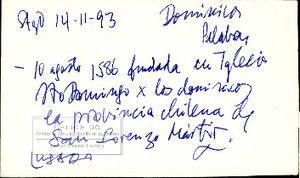 Stgo 14-11-93
Dominicos
Palabra,
- 10 agosto 1586 fundada en Iglesia
Sto Domingo x los dominicos
la provincia chilena de
San Lorenzo Mártir.